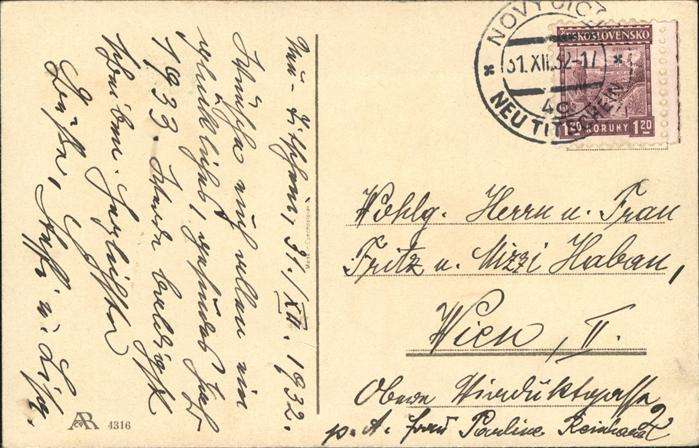 Neu-Titschein, 31./XII. 1932.
Wünsche euch allen ein
glückliches, gesundes Jahr
1933.
schreiben. Herzlichste
Grüße,
NOVÝ JIČÍN
31.XII.32-17
NEU TITSCHEIN
ČESKOSLOVENSKO
1.20 KORUNY 1.20
Wohlg. Herrn u. Frau
Fritz u. Mizzi Haban,
Wien, II.
Obere Viaduktgasse 2
p. A. Frau Pauline
AR 4316